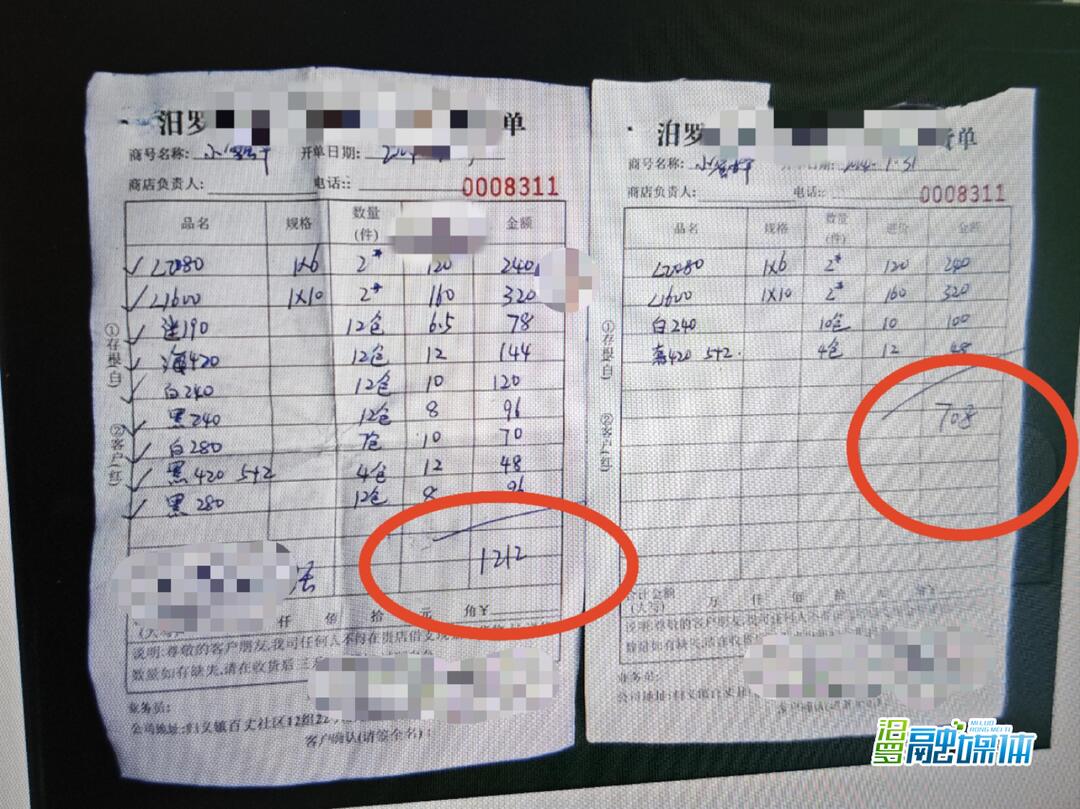 汨罗 单
商号名称: 开单日期:
商店负责人: 电话:: 0008311
品名 规格 数量(件) 金额
L2080 1×6 2* 120 240
L1600 1×10 2* 160 320
190 12包 6.5 78
海420 12包 12 144
白240 12包 10 120
黑240 12包 8 96
白280 7包 10 70
黑420 5+2 4包 12 48
黑280 12包 8 96
1212
(大写) 仟 佰 拾 元 角¥
说明:尊敬的客户朋友,我司任何人不得在贵店借支现
数量如有缺失,请在收货后三
业务员:
公司地址:归义镇百丈社区12组22
客户确认(请签全名):
①存根(白) ②客户(红)
汨罗 货单
商号名称: 开单日期:
商店负责人: 电话:: 0008311
品名 规格 数量(件) 进价 金额
L2080 1×6 2* 120 240
L1600 1×10 2* 160 320
白240 10包 10 100
420 5+2. 4包 12 48
708
合计金额(大写) 万 仟 佰 拾 角¥
说明:尊敬的客户朋友,我司任何人不
数量如有缺失,请在收货
业务员:
公司地址:归义镇百丈社
客户确认(请
①存根(白) ②客户(红)
汨罗融媒体
MI LUO RONG MEI TI